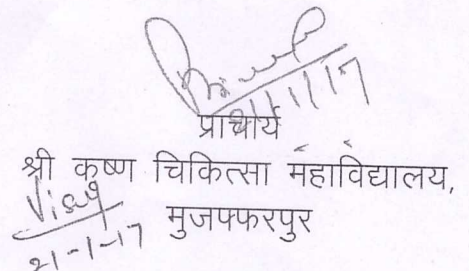 21/1/17
प्राचार्य
श्री कृष्ण चिकित्सा महाविद्यालय,
मुजफ्फरपुर
21-1-17